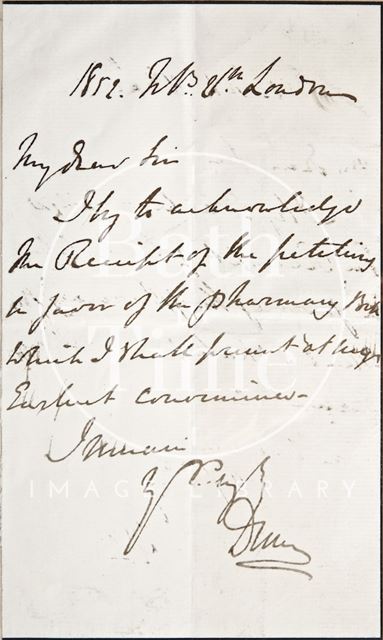 1852. Feb. 8th London
My dear Sir
I beg to acknowledge
the Receipt of the petition
in favor of the Pharmacy Bill
which I shall present at my
Earliest convenience -
I remain
Bath
in Time
IMAGE LIBRARY